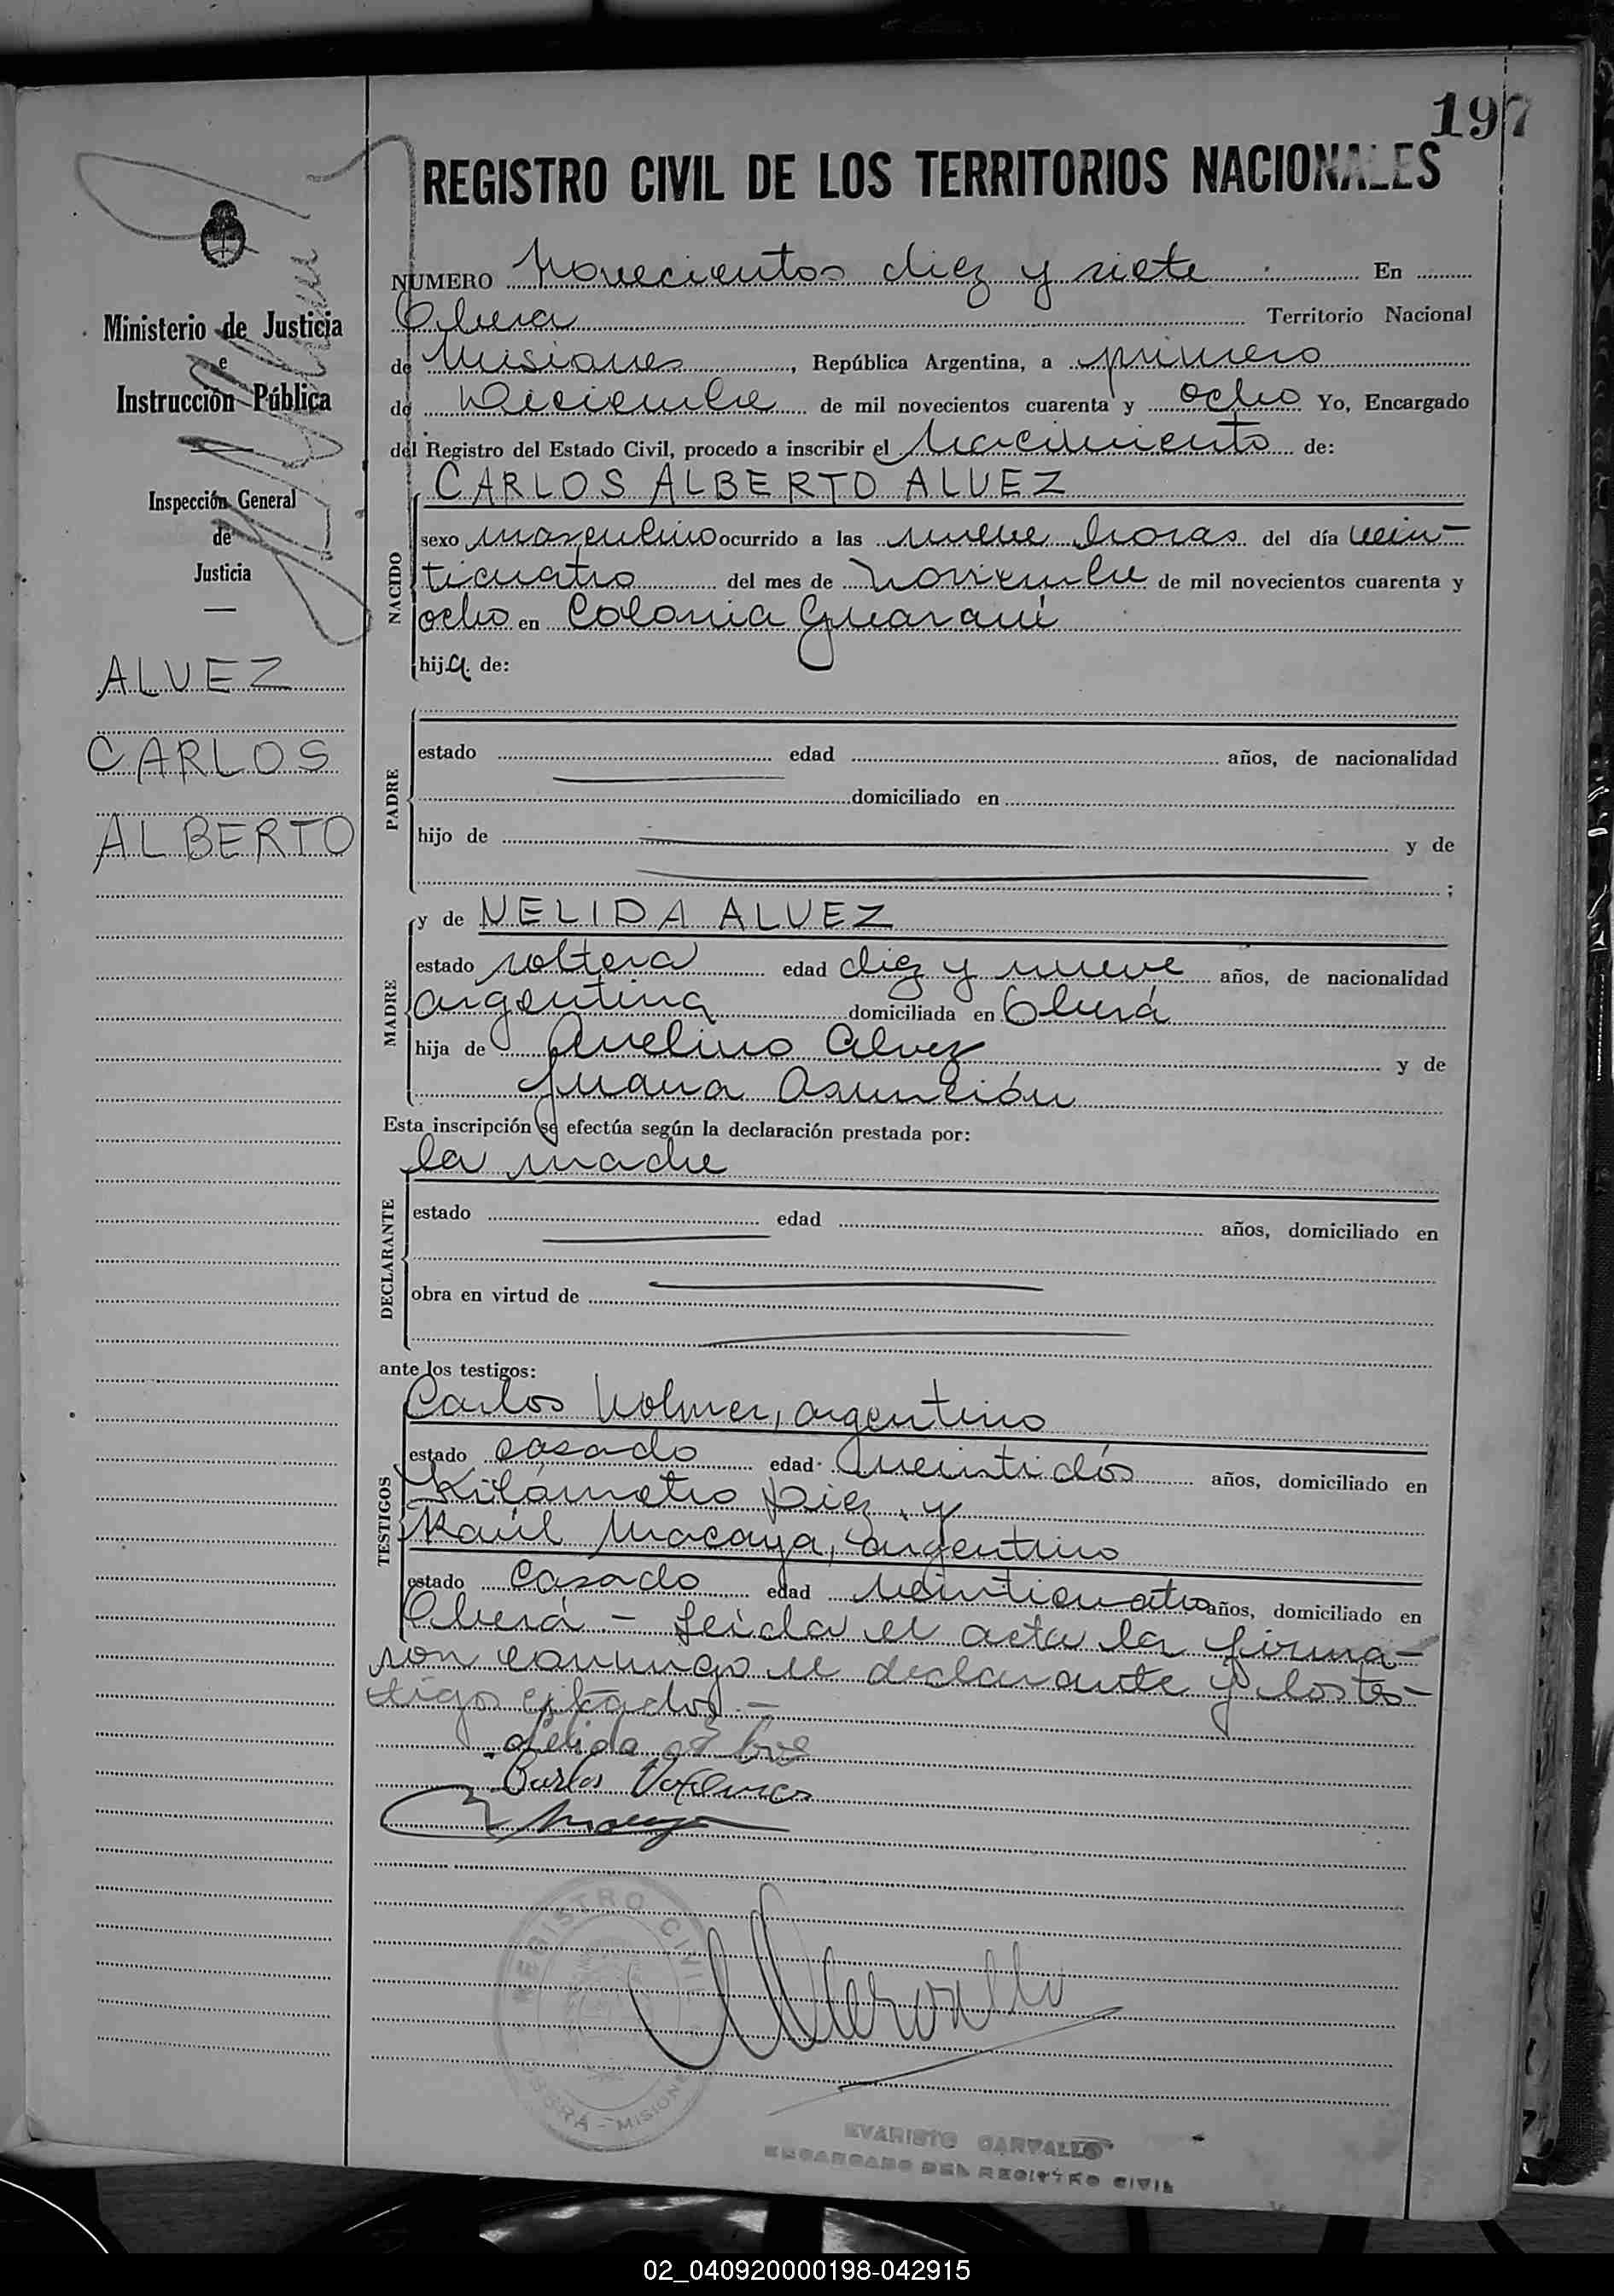 197
REGISTRO CIVIL DE LOS TERRITORIOS NACIONALES
NUMERO Novecientos diez y siete En
Obera Territorio Nacional
de Misiones, República Argentina, a primero
de Diciembre de mil novecientos cuarenta y ocho Yo, Encargado
del Registro del Estado Civil, procedo a inscribir el Nacimiento de:
CARLOS ALBERTO ALVEZ
NACIDO
sexo masculino ocurrido a las nueve horas del día vein-
ticuatro del mes de Noviembre de mil novecientos cuarenta y
ocho en Colonia Guaraní
hij de:
PADRE
estado edad años, de nacionalidad
domiciliado en
hijo de y de
;
MADRE
y de NELIDA ALVEZ
estado soltera edad diez y nueve años, de nacionalidad
argentina domiciliada en Oberá
hija de Avelino Alvez y de
Juana Asunción
Esta inscripción se efectúa según la declaración prestada por:
la madre
DECLARANTE
estado edad años, domiciliado en
obra en virtud de
ante los testigos:
TESTIGOS
Carlos argentino
estado casado edad veintidós años, domiciliado en
Kilómetro Diez y
Raúl Macaya, argentino
estado Casado edad veinticuatro años, domiciliado en
Oberá - Leida el acta la firma-
ron conmigo el declarante y los tes-
tigos citados -
Carlos
Ministerio de Justicia
e
Instrucción Pública
Inspección General
de
Justicia
ALVEZ
CARLOS
ALBERTO
REGISTRO CIVIL
OBERA - MISIONES
EVARISTO CARVALLO
ENCARGADO DEL REGISTRO CIVIL
02_040920000198-042915